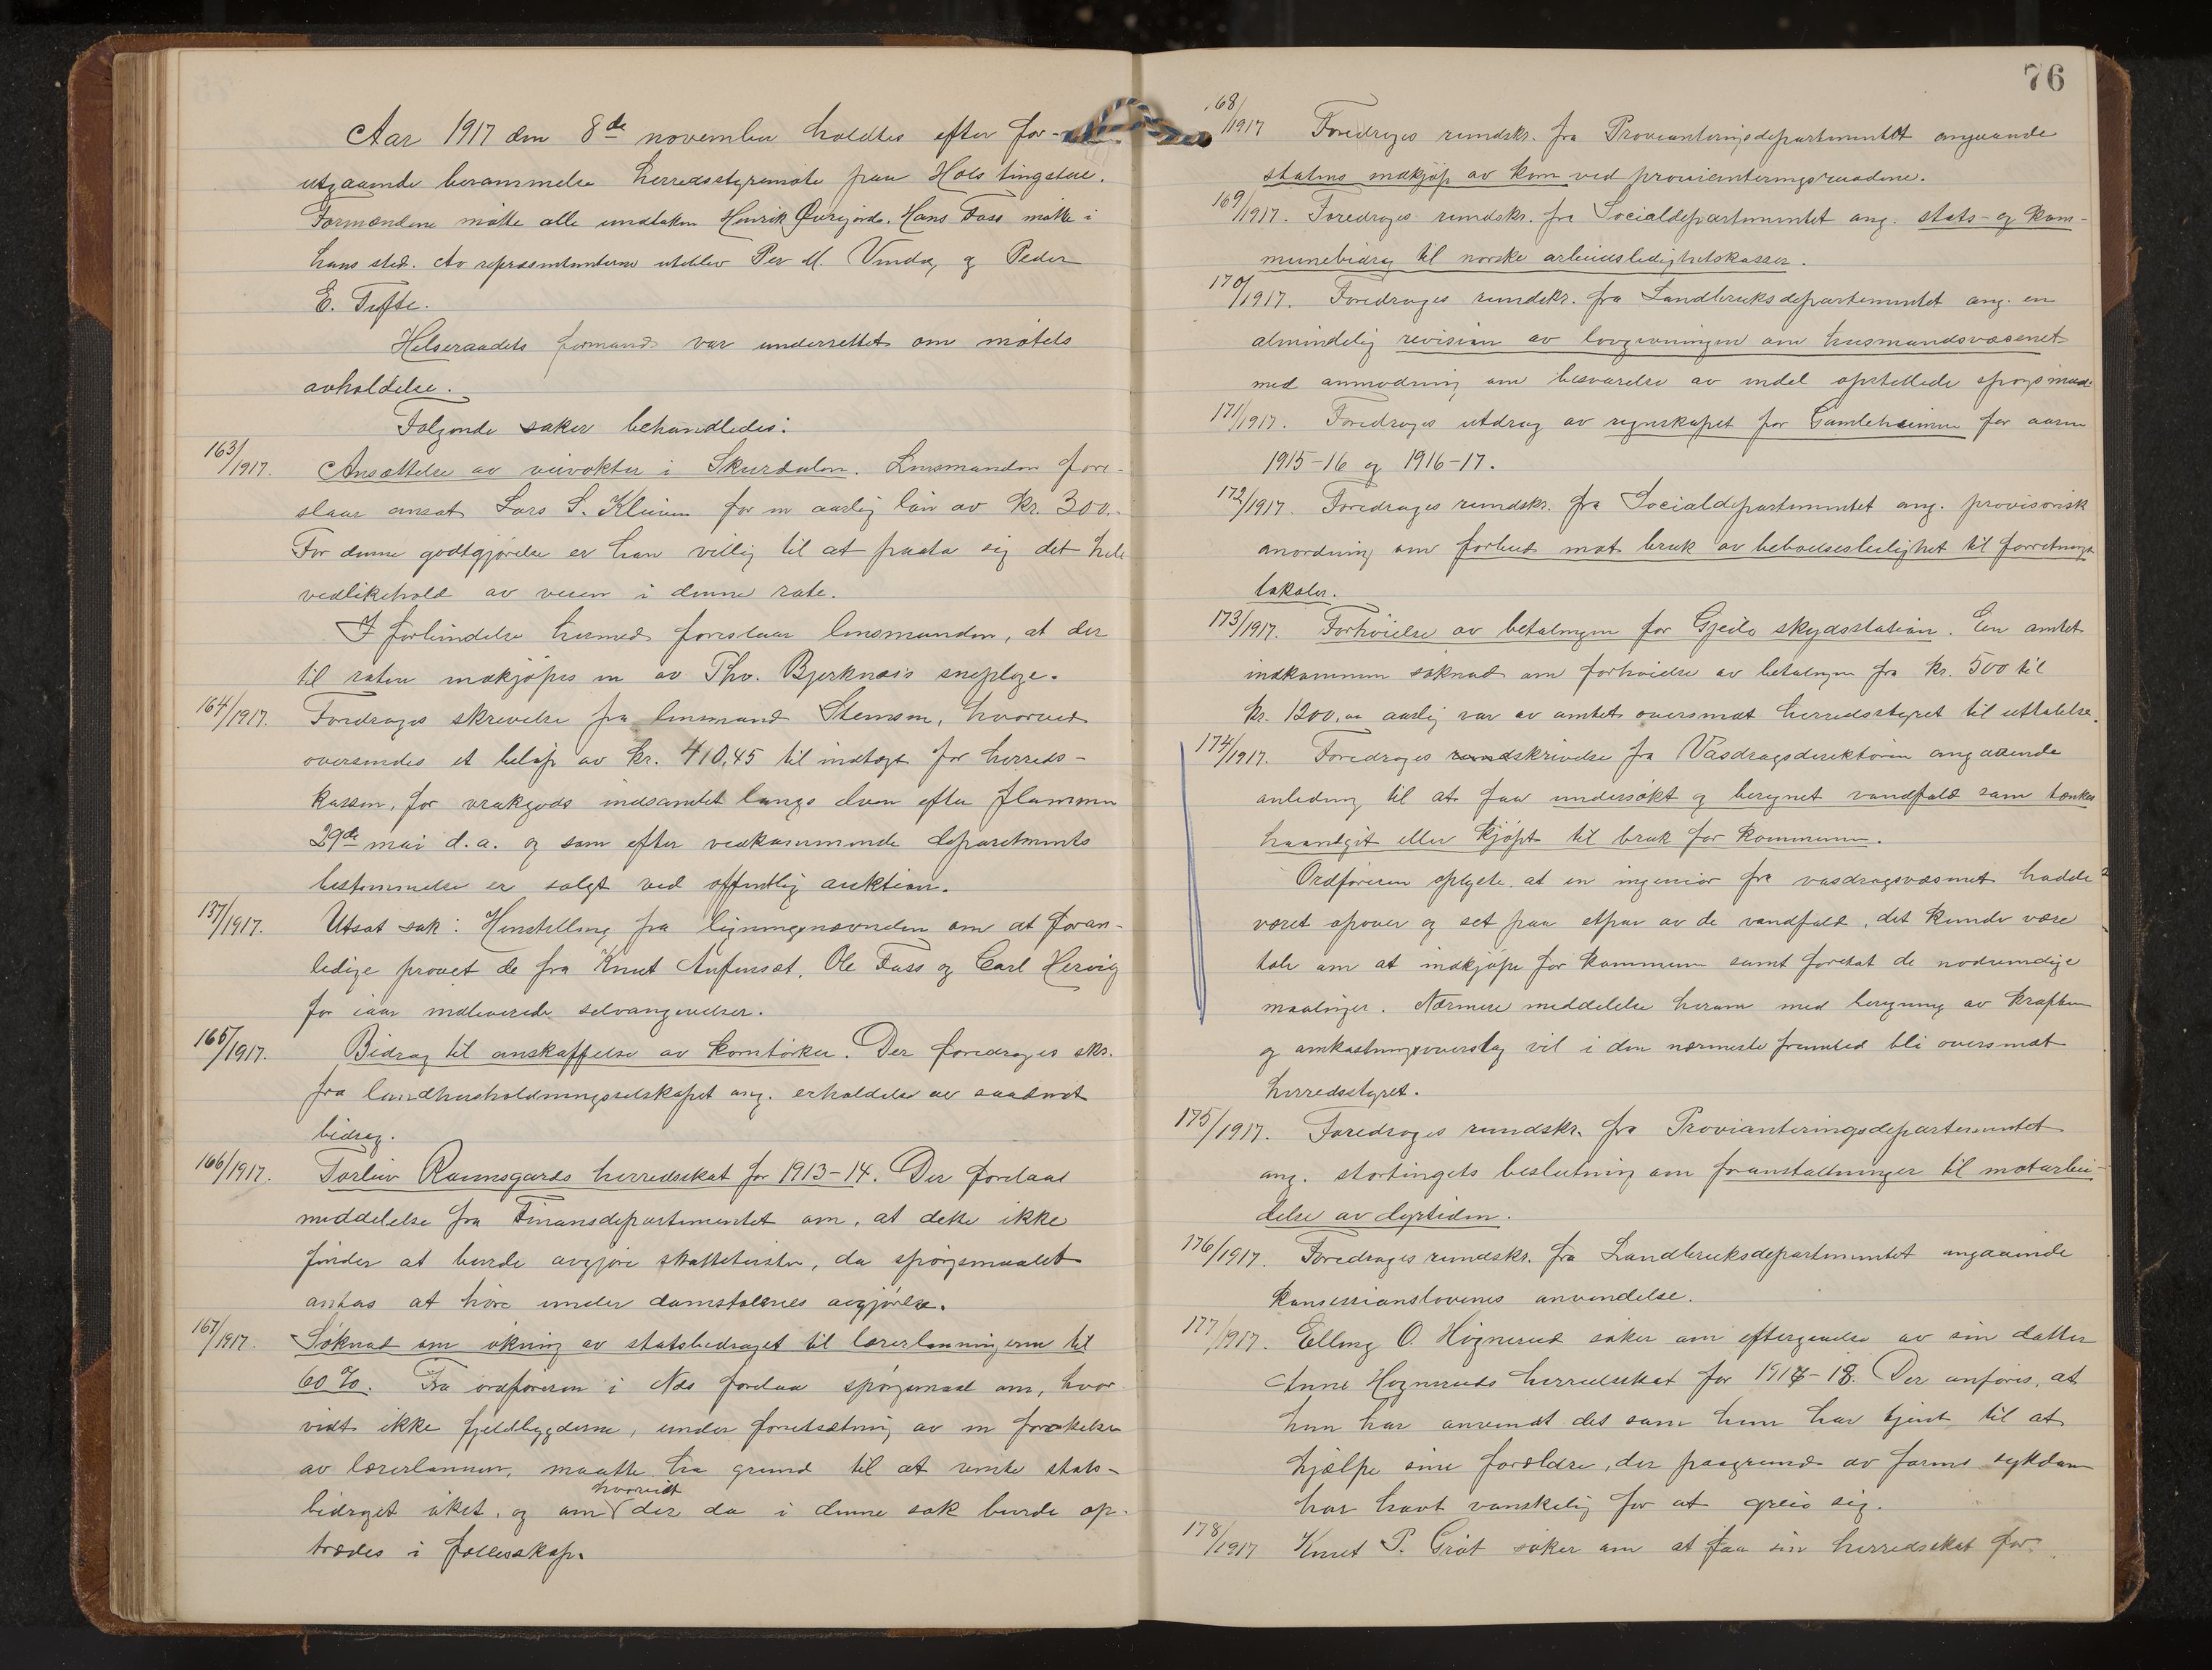 Aar 1917 den 8de november holdtes efter for-
utgaaende berammelse herredsstyremøte paa Hols tingstue.
Formændene møtte alle undtaken Henrik Øvregjorde. Hans Foss møtte i
hans sted. Av repræsentanterne uteblev Per M. Vinda, og Peder
E. Tufte.
Helseraadets formand var underrettet om møtets
avholdelse.
Følgende saker behandledes:
163/1917. Ansættelse av veivokter i Skurdalen. Lensmanden fore-
slaar ansat Lars S. Kleiven for en aarlig løn av kr. 300.-
For denne godtgjørelse er han villig til at paata sig det hele
vedlikehold av veien i denne rote.
I forbindelse hermed foreslaar lensmanden, at der
til roten indkjøpes en av Tho. Bjerknæs sneploge.
164/1917. Foredroges skrivelse fra lensmand Stensen, hvorved
oversendes et beløp av kr. 410,45 til indtægt for herreds-
kassen, for vrakgods indsamlet langs elven efter flommen
29de mai d.a. og som efter vedkommende departements
bestemmelse er solgt ved offentlig auktion.
137/1917. Utsat sak: Henstilling fra ligningsnævnden om at foran-
ledige prøvet de fra Knut Anfinset, Ole Foss og Carl Hervig
for iaar indleverede selvangivelser.
165/1917. Bidrag til anskaffelse av korntørker. Der foredroges skr.
fra landhusholdningsselskapet ang. erholdelse av saadant
bidrag.
166/1917. Torleiv Raunsgards herredsskat for 1913-14. Der forelaa
meddelelse fra Finansdepartementet om, at dette ikke
finder at burde avgjøre skattetvisten, da spørgsmaalet
antas at høre under domstolenes avgjørelse.
167/1917. Søknad om økning av statsbidraget til lærerlønningerne til
60 %. Fra ordføreren i Nes forelaa spørgsmaal om, hvor
vidt ikke fjeldbygderne, under forutsætning av en forøkelse
av lærerlønnen, maatte ha grund til at vente stats-
hvorvidt
bidraget øket, og om der da i denne sak burde op-
trædes i fællesskap.
76
168/1917 Foredroges rundskr. fra Provianteringsdepartementet angaaende
statens indkjøp av korn ved provianteringsraadene.
169/1917. Foredroges rundskr. fra Socialdepartementet ang. stats- og kom-
munebidrag til norske arbeidsledighetskasser.
170/1917. Foredroges rundskr. fra Landbruksdepartementet ang. en
almindelig revision av lovgivningen om husmandsvæsenet
med anmodning om besvarelse av endel opstillede spørgsmaal.
171/1917. Foredroges utdrag av regnskapet for Gamleheimen for aarene
1915-16 og 1916-17.
172/1917. Foredroges rundskr. fra Socialdepartementet ang. provisorisk
anordning om forbud mot bruk av beboelsesleilighet til forretnings-
lokaler.
173/1917. Forhøielse av betalingen for Gjeilo skydsstation. En amtet
indkommen søknad om forhøielse av betalingen fra kr. 500 til
kr. 1200,00 aarlig var av amtet oversendt herredsstyret til uttalelse.
174/1917. Foredroges rundskrivelse fra Vasdragsdirektøren angaaende
anledning til at faa undersøkt og beregnet vandfald som tænkes
haandgit eller kjøpt til bruk for kommunen.
Ordføreren oplyste at en ingeniør fra vasdragsvæsenet hadde
været opover og set paa etpar av de vandfald, det kunde være
tale om at indkjøpe for kommunen samt foretat de nødvendige
maalinger. Nærmere meddelelse herom med beregning av kraften
og omkostningsoverslag vil i den nærmeste fremtid bli oversendt
herredsstyret.
175/1917. Foredroges rundskr. fra Provianteringsdepartementet
ang. stortingets beslutning om foranstaltninger til motarbei-
delse av dyrtiden.
176/1917. Foredroges rundskr. fra Landbruksdepartementet angaaende
konsessionslovenes anvendelse.
177/1917. Elling O. Høgnerud søker om eftergivelse av sin datter
Anne Høgneruds herredsskat for 1917-18. Der anføres, at
hun har anvendt det som hun har tjent til at
hjælpe sine forældre, der paagrund av farens sykdom
har havt vanskelig for at greie sig.
178/1917 Knut P. Grøt søker om at faa sin herredsskat for